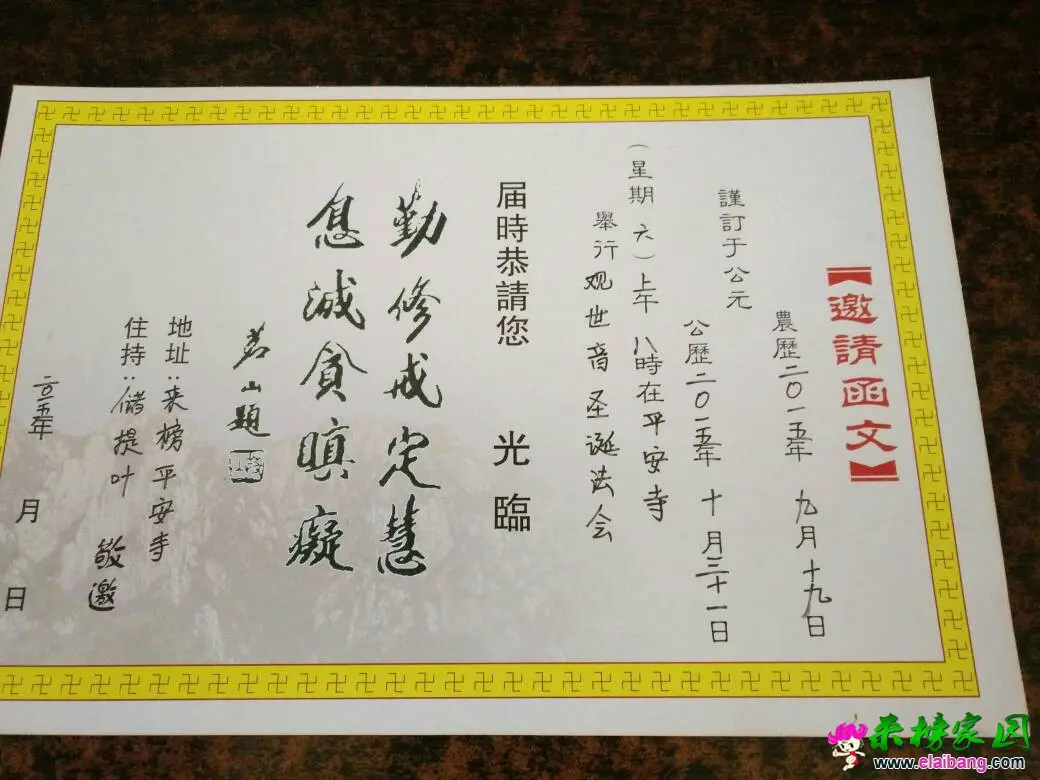 【邀請函文】
農歷二0一五年 九月十九日
謹訂于公元
公歷二0一五年 十月三十一日
(星期六)上午 八時在平安寺
舉行观世音圣诞法会
届時恭請您 光臨
勤修戒定慧
息滅貪瞋癡
茗山題
地址:来榜平安寺
住持:储提叶 敬邀
二0一五年 月 日
来榜家园
www.elaibang.com